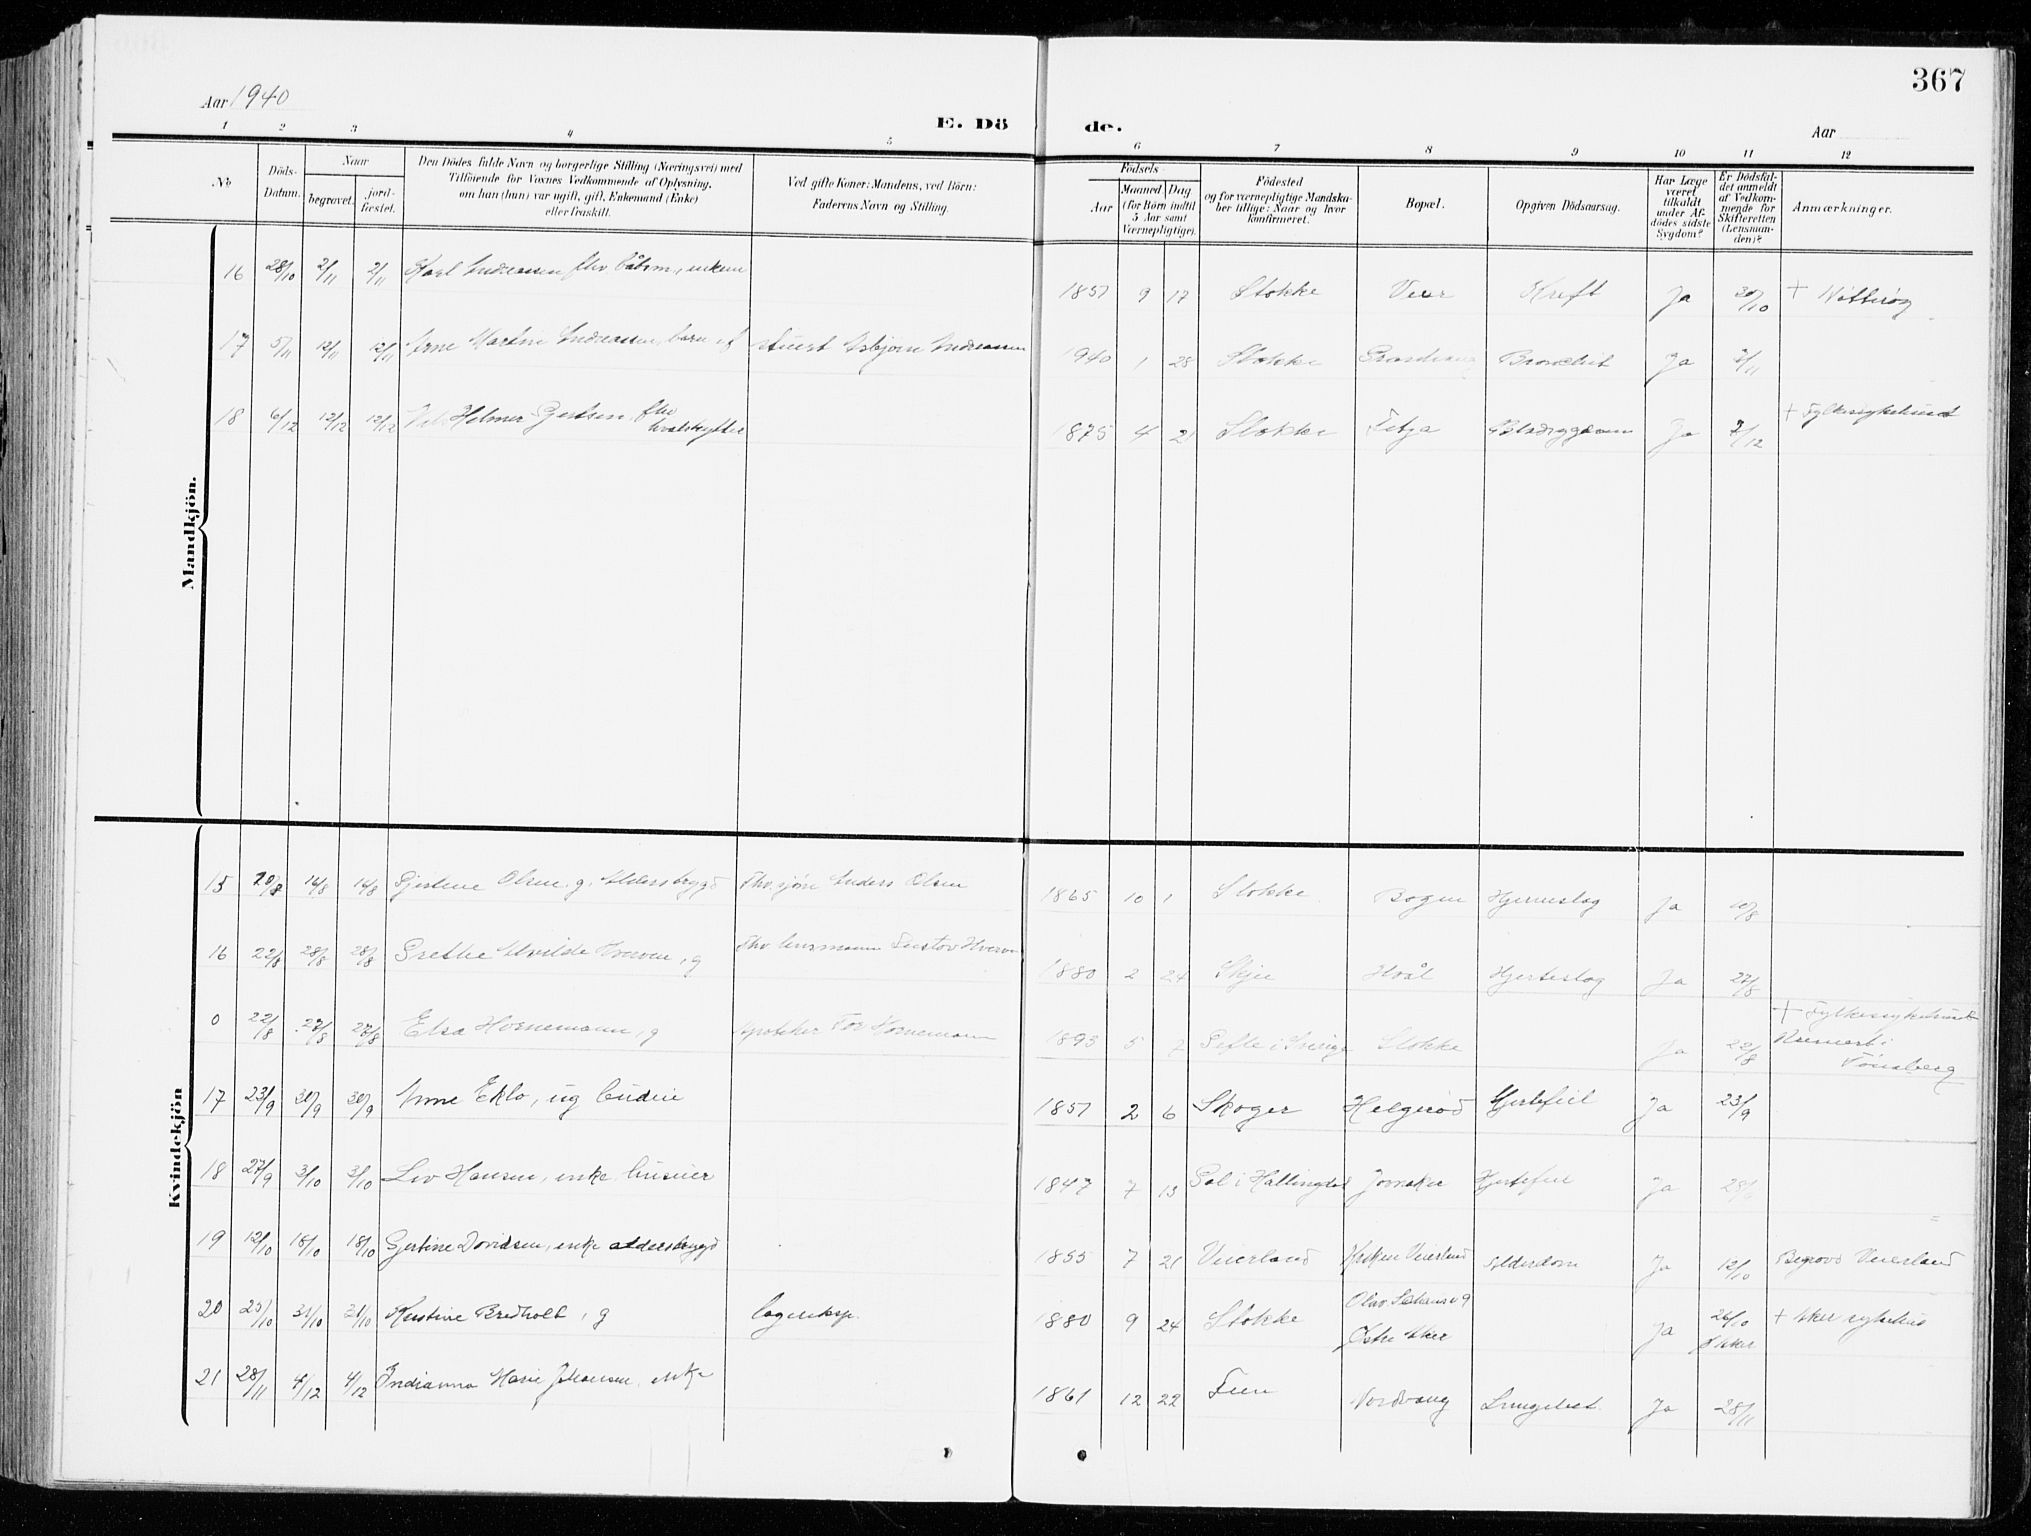 367
Aar 1940
E. Dö
de.
Aar
1 2 3 4 5 6 7 8 9 10 11 12
No
Döds-
Datum.
Naar
begravet.
jord-
fæstet.
Den Dödes fulde Navn og borgerlige Stilling (Næringsvei) med
Tilföiende for Voxnes Vedkommende af Oplysning,
om han (hun) var ugift, gift, Enkemand (Enke)
eller fraskilt.
Ved gifte Koner: Mandens, ved Börn:
Faderens Navn og Stilling.
Födsels-
Aar
Maaned.
Dag
(for Börn indtil
5 Aar samt
Værnepligtige).
Födested
og for værnepligtige Mandska-
ber tillige: Naar og hvor
konfirmeret.
Bopæl.
Opgiven Dödsaarsag.
Har Læge
været
tilkaldt
under Af-
dödes sidste
Sygdom?
Er Dödsfal-
det anmeldt
af Vedkom-
mende for
Skifteretten
(Lensman-
den)?
Anmærkninger.
Mandkjön.
16 28/10 2/11 2/11 Karl Andreassen fhv båtsm, enkem 1857 9 17 Stokke Veier Kreft Ja 30/10 +
17 5/11 12/11 12/11 Arne Martin Andreassen, barn af stuert Asbjørn Andreassen 1940 1 28 Stokke Ja 7/11
18 6/12 12/12 12/12 Helmer Gjertsen, fhv hvalskytter 1875 4 21 Stokke Fetja Ja 7/12 + Fylkessykehuset
Kvindekjön
15 10/8 14/8 14/8 Gjertine Olsen, g, Alderstrygd Fhv. sjøm Anders Olsen 1865 10 1 Stokke Bogen Hjerneslag Ja 10/8
16 22/8 28/8 28/8 Grethe Alvilde Hverven, g Fhv lensmann Gustav Hverven 1880 2 24 Skjee Hvål Hjerteslag Ja 27/8
0 22/8 27/8 27/8 Elsa Hornemann, g Apoteker Tor Hornemann 1893 5 7 Gefle i Sverige Stokke Ja 22/8 + Fylkessykehuset
Kremert i
Tønsberg
17 23/9 30/9 30/9 Anne Eklo, ug budeie 1857 2 6 Skoger Helgerød Hjertefeil Ja 23/9
18 27/9 3/10 3/10 Liv Hansen, enke, huseier 1847 7 13 Gol i Hallingdal Jovnaker Hjertefeil Ja 28/9
19 12/10 18/10 18/10 Gjertine Davidsen, enke alderstrygd 1855 7 21 Veierland Kroken Veierland Alderdom Ja 12/10 Begravd Veierland
20 25/10 31/10 31/10 Kristine Bredholt, g lagereksp. 1880 9 24 Stokke Østre Aker Ja 26/10 Ø Aker + Aker sykehus
21 28/11 4/12 4/12 Indianna Marie Johansen, enke 1861 12 22 Nordvang Lungebet. Ja 28/11